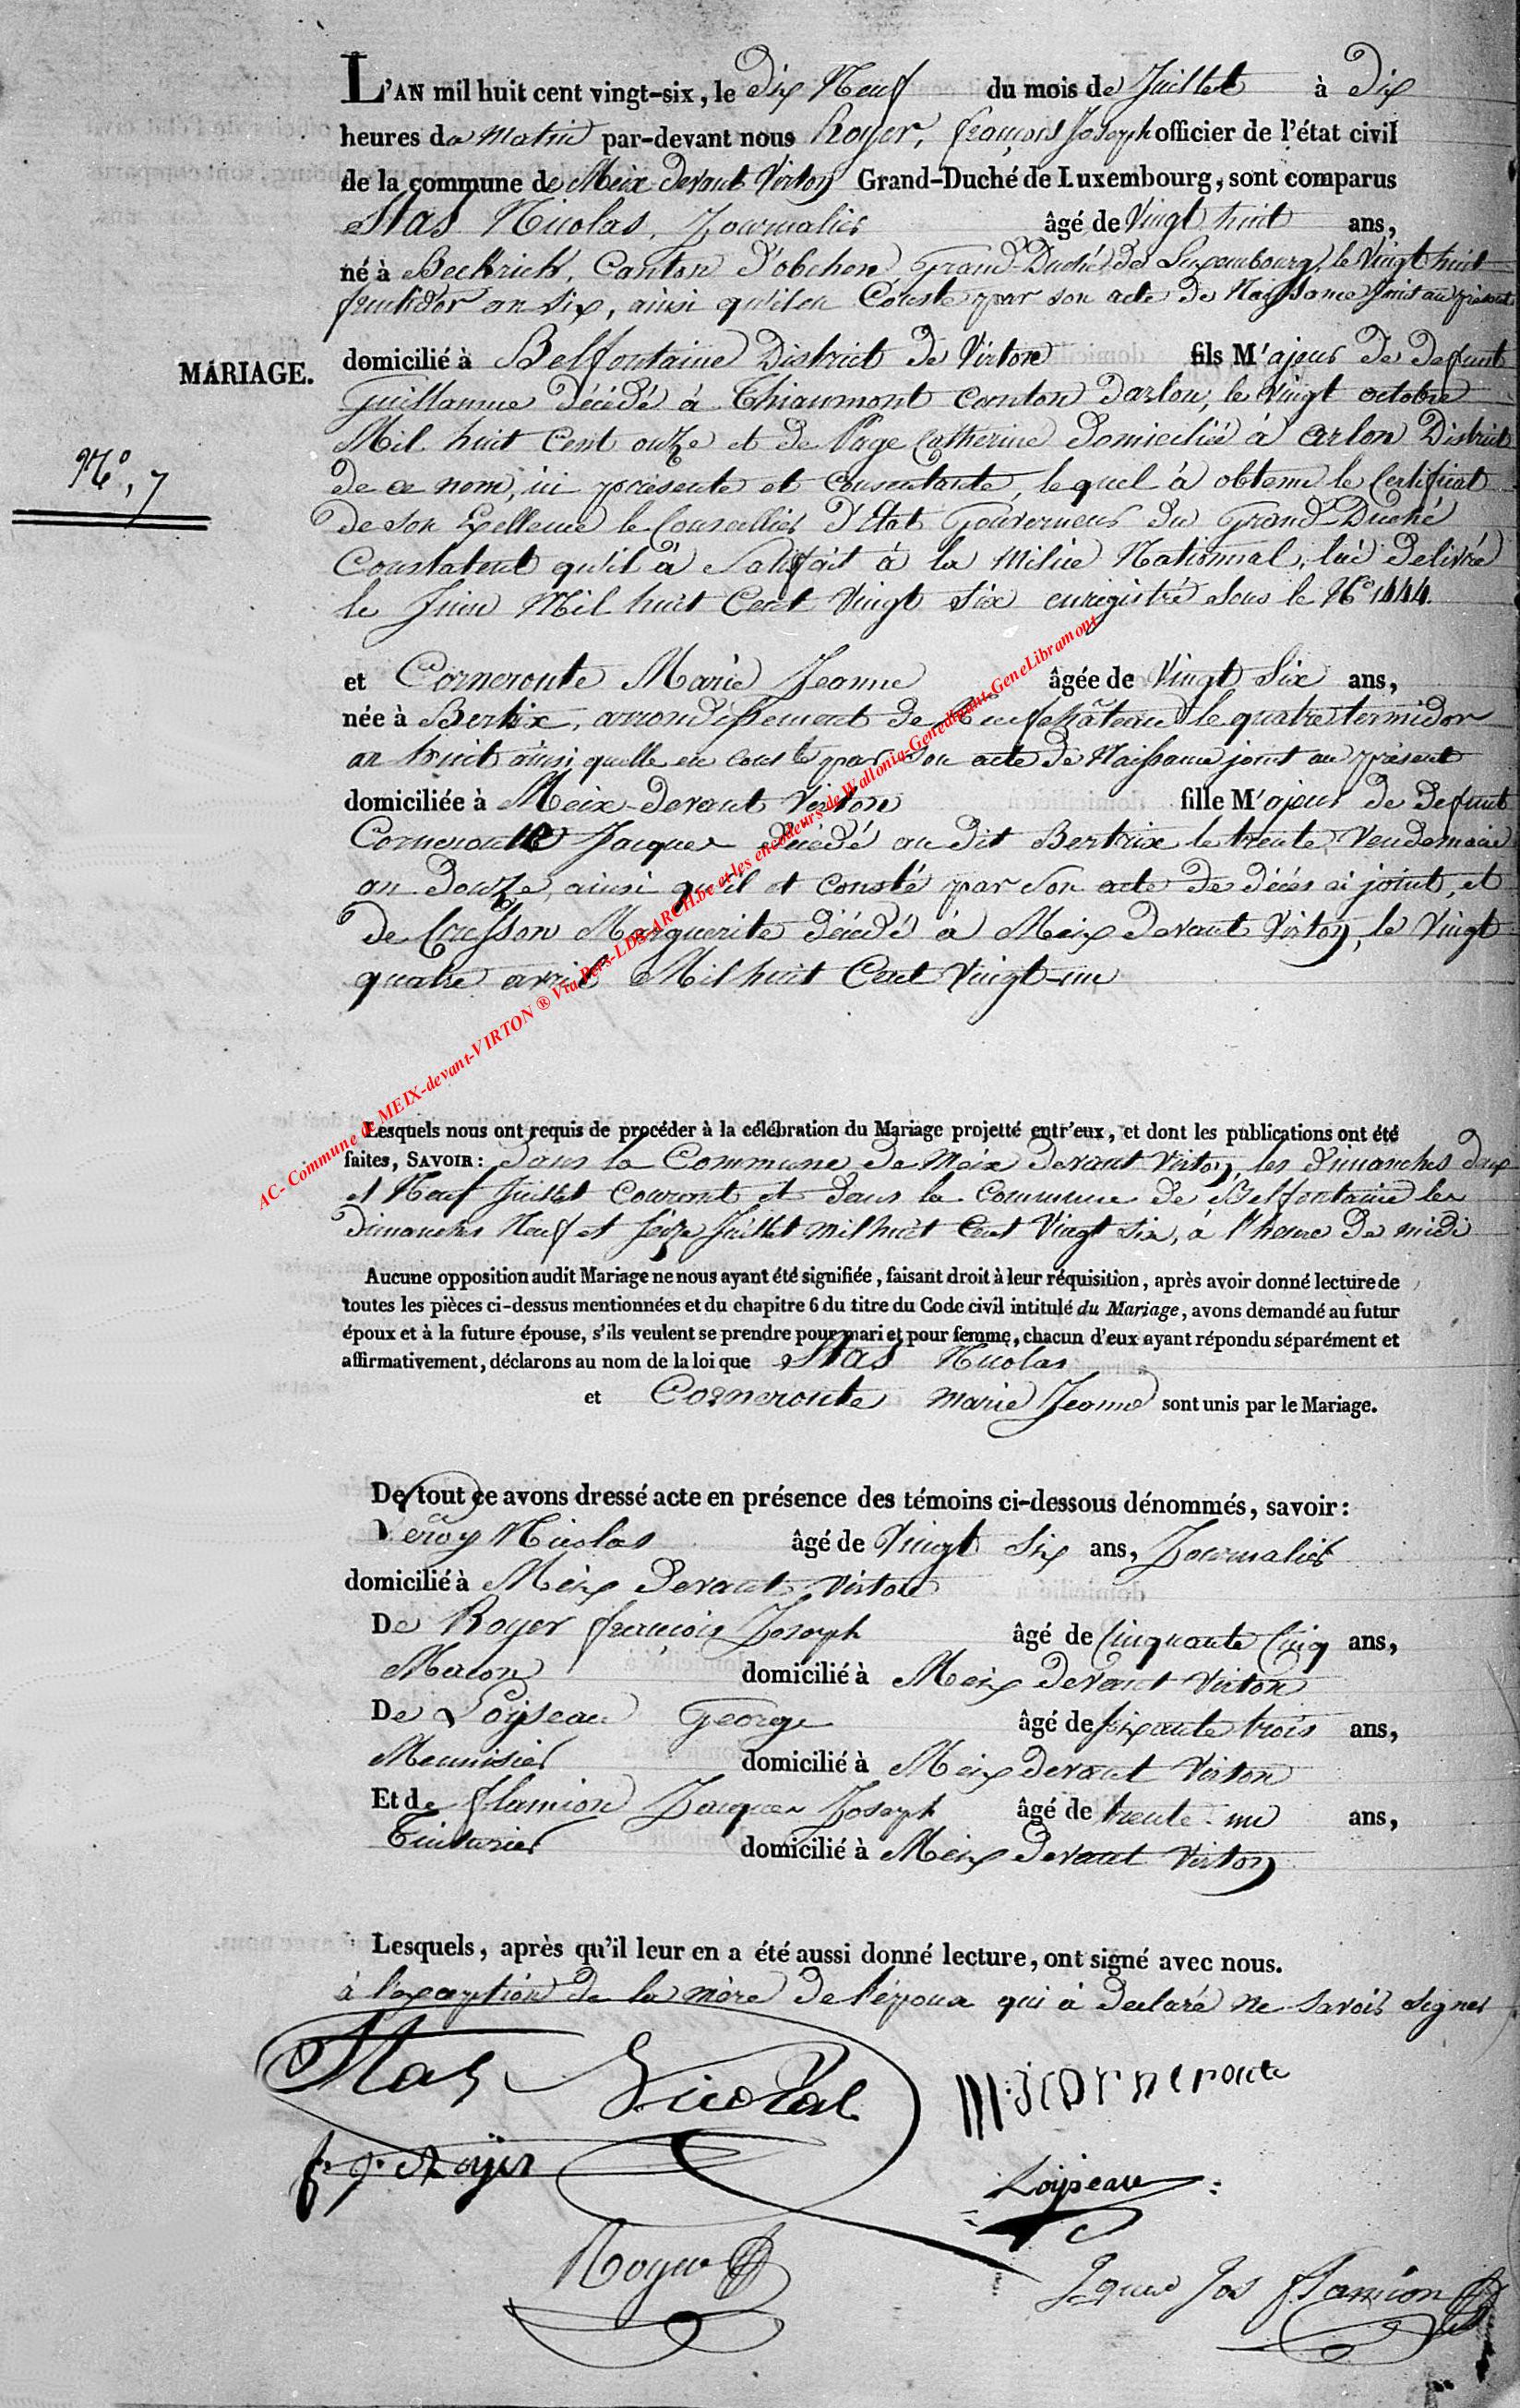 L'AN mil huit cent vingt-six, le Dix Neuf du mois de Juillet à Dix
heures du Matin par-devant nous Royer, françois Joseph officier de l'état civil
de la commune de Meix devant Virton Grand-Duché de Luxembourg, sont comparus
Stas Nicolas, Journalier âgé de Vingt huit ans,
né à Beckrich, Canton d'obchen Grand-Duché de Luxembourg, le Vingt huit
fructidor an six, ainsi qu'il en Conste par son acte de Naissance Joint au présent
MARIAGE.
domicilié à Belfontaine District de Virton fils M'ajeur de defunt
Guillaume décédé à Thiaumont canton Darlon, le Vingt octobre
Mil huit Cent onze et de Page Catherine Domiciliée à arlon District
N.º 7
de ce nom, ici présente et Consentante, lequel à obtenu le Certificat
de son Exellence le Conseillier d'Etat Gouverneur du Grand-Duché
Constatent qu'il à Satisfait à la Milice Nationnal, lui Delivré
le Juin Mil huit Cent Vingt Six enregistré sous le Nº 1444.
et Corneroute Marie Jeanne âgée de Vingt Six ans,
née à Bertrix, arrondissement de Neufchâteau le quatre termidor
an huit ainsi quelle en Conste par son acte de Naissance joint au présent
domiciliée à Meix-devant Virton fille M'ajeur de Defunt
Corneroute Jacques Décédé au dit Bertrix le trente Vendemaire
an Douze, ainsi qu'il et Consté par Son acte de décés ci joint, et
de Cresson Marguerite décédé à Meix Devant Virton, le Vingt
quatre avril Mil huit Cent Vingt-un
AC- Commune de MEIX-devant-VIRTON ® Via Pers-LDS-ARCH.be et les encodeurs de Wallonia-Genedinant-GeneLibramont
Lesquels nous ont requis de procéder à la célébration du Mariage projetté entr'eux, et dont les publications ont été
faites, SAVOIR: Dans la Commune de Meix Devant Virton, les Dimanches deux
et Neuf Juillet Courant et Dans la Commune de Belfontaine les
Dimanches Neuf et seize Juillet mil huit Cent Vingt six, à l'heure de midi
Aucune opposition audit Mariage ne nous ayant été signifiée, faisant droit à leur réquisition, après avoir donné lecture de
toutes les pièces ci-dessus mentionnées et du chapitre 6 du titre du Code civil intitulé du Mariage, avons demandé au futur
époux et à la future épouse, s'ils veulent se prendre pour mari et pour femme, chacun d'eux ayant répondu séparément et
affirmativement, déclarons au nom de la loi que Stas Nicolas
et Corneroute marie Jeanne sont unis par le Mariage.
De tout ce avons dressé acte en présence des témoins ci-dessous dénommés, savoir:
Leroy Nicolas âgé de Vingt Six ans, Journalier
domicilié à Meix Devant Virton
De Royer françois Joseph âgé de Cinquante Cinq ans,
Macon domicilié à Meix Devant Virton
De Loyseau George âgé de soixante trois ans,
Meunisier domicilié à Meix Devant Virton
Et de flamion Jacques Joseph âgé de trente-un ans,
Tinturier domicilié à Meix Devant Virton
Lesquels, après qu'il leur en a été aussi donné lecture, ont signé avec nous.
à l'exception de la mère de l'époux qui à declaré ne savoir signer
Stas Nicolas
m: j corneroute
f. j. Royer
Loyseau
Royer
Jques Jos flamion